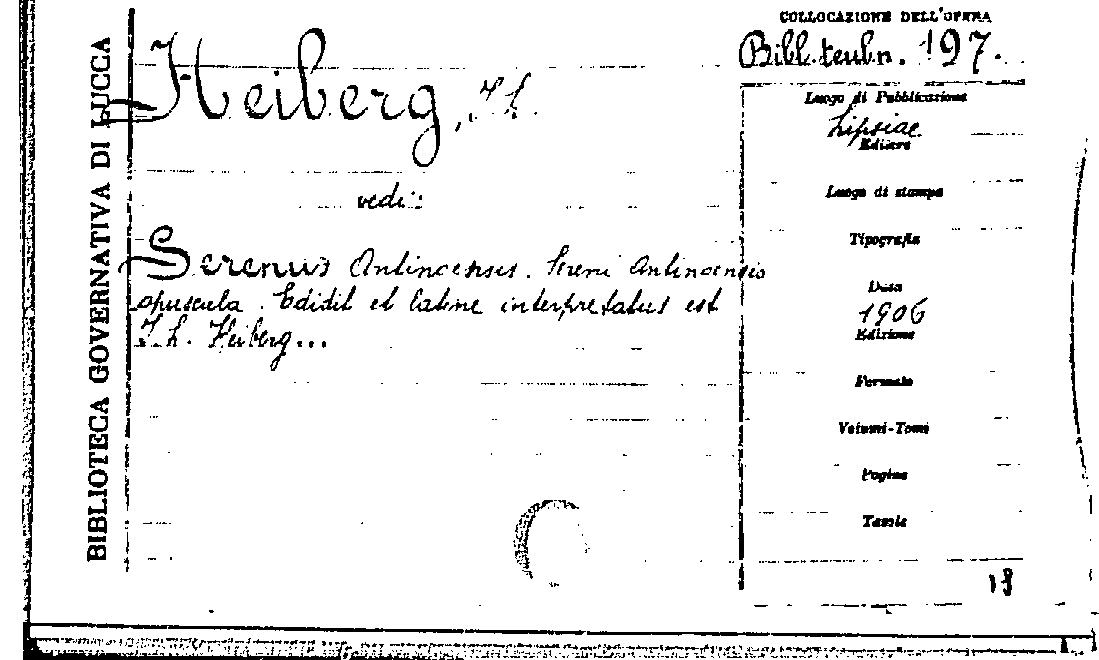 COLLOCAZIONE DELL'OPERA
Bibl. teubn. 197.
BIBLIOTECA GOVERNATIVA DI LUCCA
Heiberg, I. L.
vedi:
Serenus Antinoensis. Sereni Antinoensis
opuscula. Edidit et latine interpretatus est
I. L. Heiberg...
Luogo di Pubblicazione
Lipsiae
Editore
Luogo di stampa
Tipografia
Data
1906
Edizione
Formato
Volumi-Tomi
Pagine
Tavole